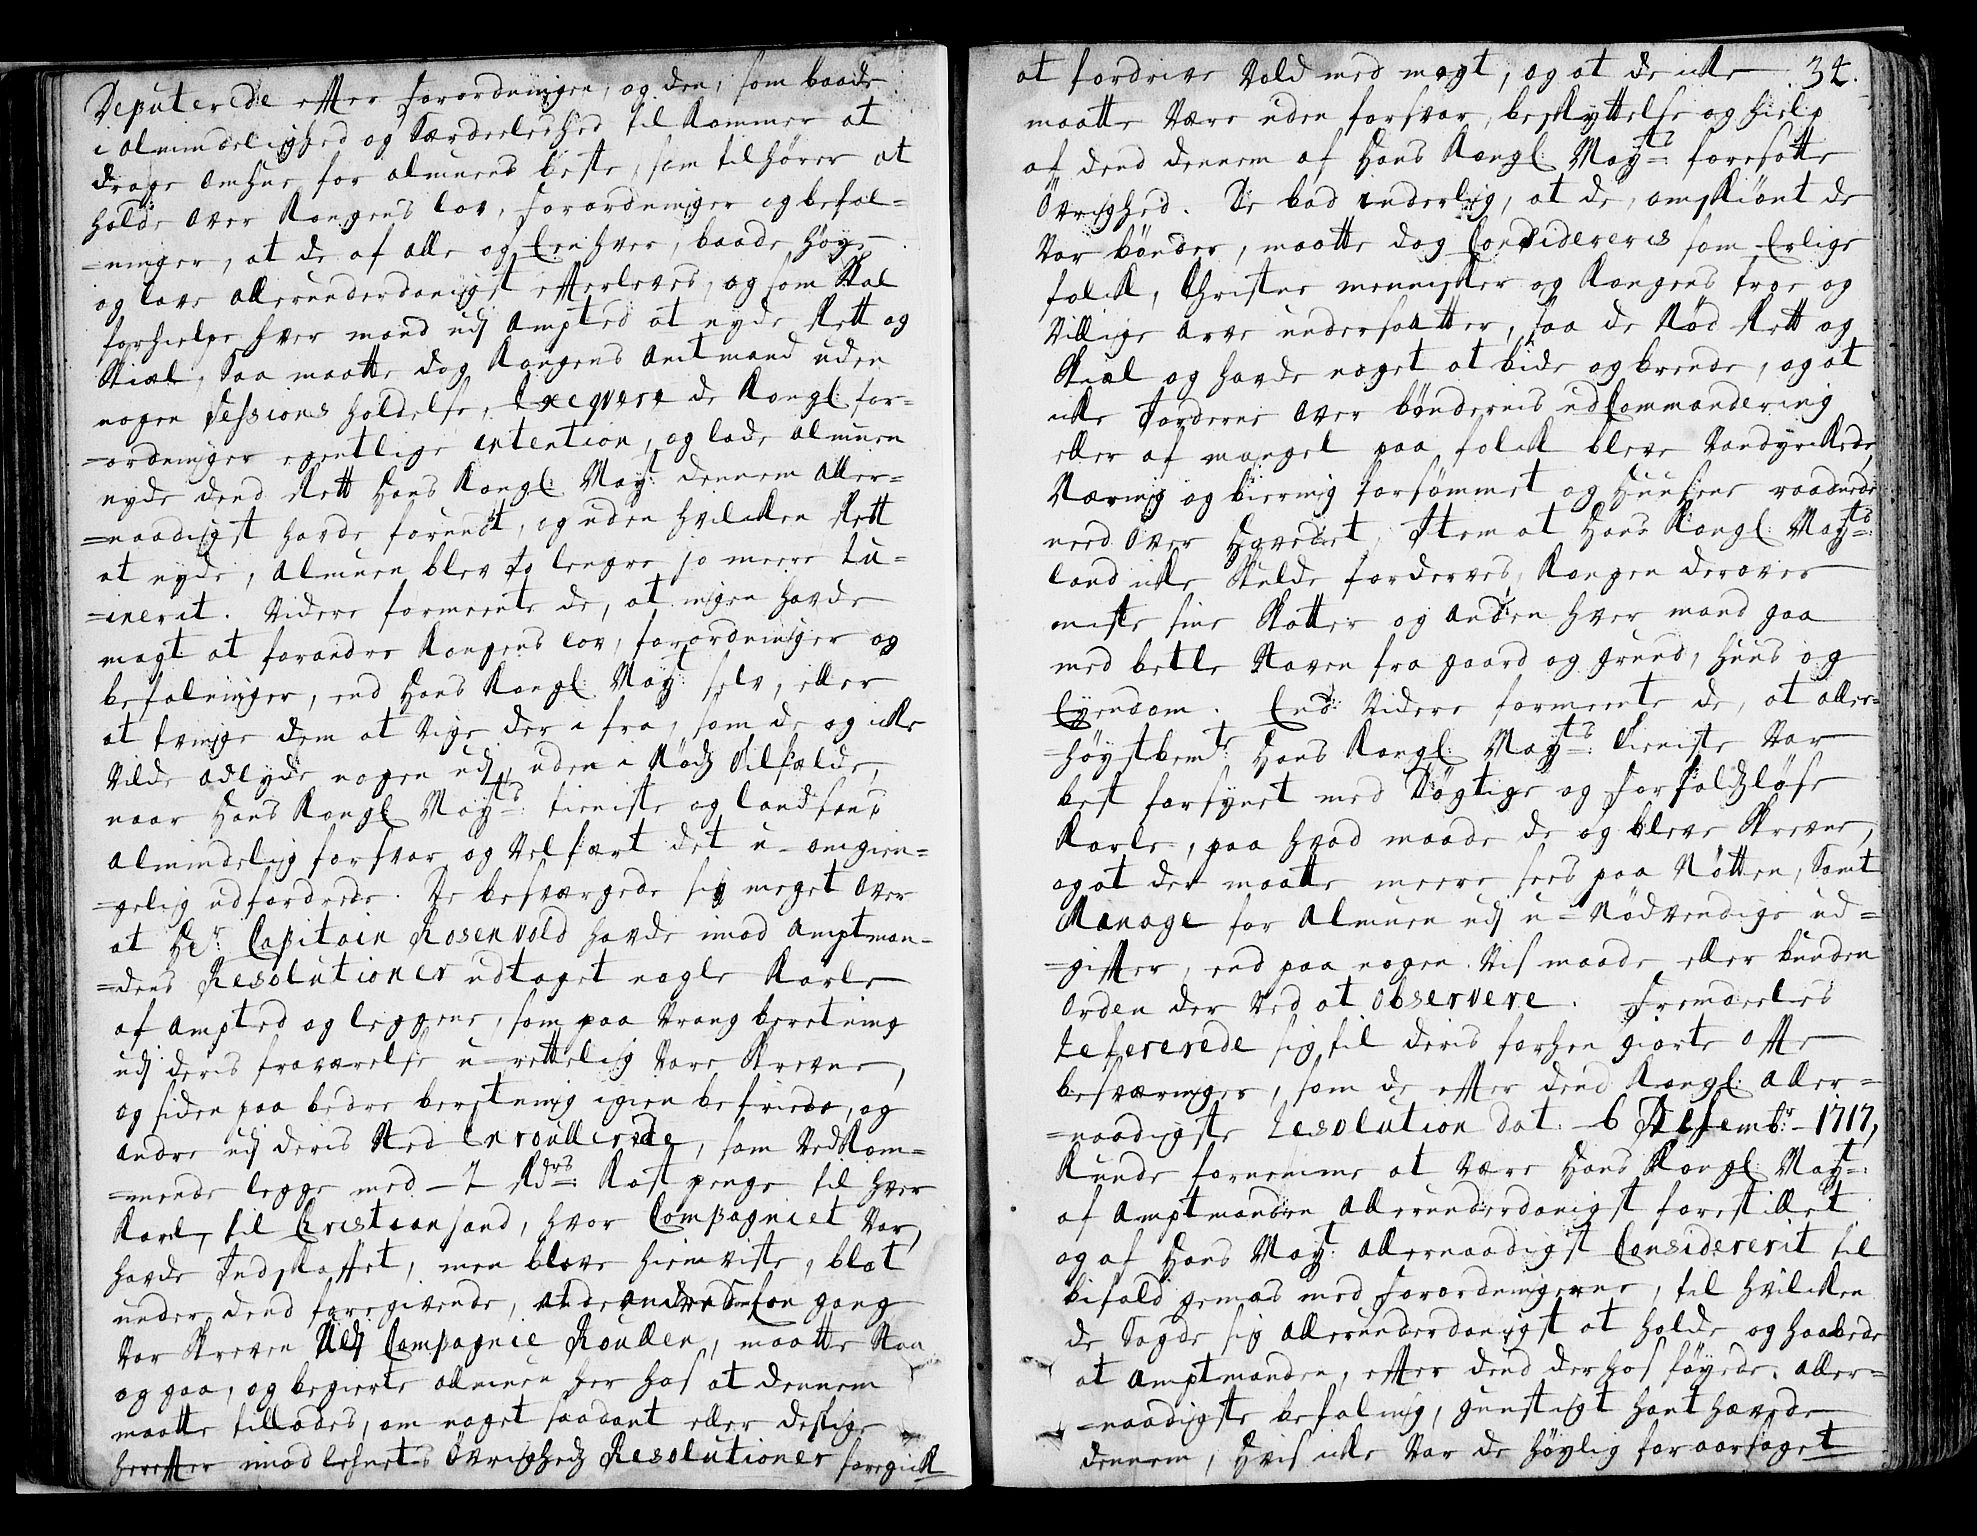 Deputerede efter Forordningen, og den, som baade
i Almindelighed og Særdeelished til kommer at
drage omhue for almuens beste, som tilhører at
holde over Kongens lov, forordninger og befal-
=ninger, at de af alle og Eenhver, baade høye
og lave allerunderdanigst efterleves, og som skal
forhielpe hver mand udj Ampted at nyde Rett og
Skiæl, Saa maatte dog Kongens Amtmand uden
nogen Sessions holdelse, Exeqvere de Kongl: for-
=ordninger egentlige intention, og lade almuen
nyde dend Rett Hans Kongl: Mayt: dennem aller-
=naadigst hafde forundt, og uden hvilcken Rett
at nyde, Almuen blev jo lengre jo meere Ru-
=inerit. Videre formeente de, at ingen hafde
magt at forandre Kongens lov, forordninger og
befalninger, end Hans Kongl: Mayt: selv, eller
at tvinge dem at vige der i fra, som de og icke
vilde adlyde nogen udj, uden i Nødz tilfælde,
naar Hans Kongl: Mayts: tieniste og landsens
almindelig forsvar og Velfært det u-omgien-
=gelig udfordrede. De besværgede sig meget over
at Hr: Capitain Rosenvold hafde imod Amptman-
=dens Resolutioner udtaget nogle Karle
af Ampted og leggene, som paa vrang beretning
udj deris fraværelse u-rettelig vare Skrevne,
og siden paa bedre beretning igien befriede, og
andre udj deris Sted Enroullerede, som vedkom-
=mende legge med - 7 Rdrs: Kost penge til hver
Karl, til Christiansand, hvor Compagniet var,
hafde Indskaffet, men bleve hiemviste, blot
under dend foregivende, at de anden een gang
var Skreven udj Compagnie Roullen, maatte staa
og gaa, og begierte almuen her hos at dennem
maatte tillades, om noget saadant eller deslige
herefter imod lehnets Øvrigheds Resolutioner foregick
at fordrive Vold med magt, og at de icke 34.
maatte være uden forsvar, beskyttelse og hielp
af dend dennem af Hans Kongl: Mayts: foresatte
Øvrighed. De bad inderlig, at de, omskiønt de
var bønder, maatte dog Considereris som Erlige
folck, Christne mennisker og Kongens troe og
villige arve undersaatter, saa de Nød Rett og
Skiæl og hafde noget at bide og brende, og at
icke Jorderne over bøndernis udCommandering
eller af mangel paa folck bleve Vandyrckede,
Næring og biering forsømmet og Huusene raadnede
need over Hovedet, Item at Hans Kongl: Mayts:
land icke skulde forderves, Kongen derover
miste sine Skatter og anden hver mand gaa
med betle Staven fra gaard og grund, huus og
Eyendom. End: Videre formeente de, at aller-
=høystbemte: Hans Kongl: Mayts: Tieniste var
best forsynet med Døgtige og Forfaldzløse
Karle, paa hvad maade de og bleve Skrevne,
og at der maatte meere sees paa Nøtten, Samt
Menage for Almuen udj u-Nødvendige ud-
=gifter, end paa nogen vis maade eller bunden
orden der ved at observere. Fremdeeles
refererede sig til deris forhen giorte ofte
besværinger, som de efter dend Kongl: Aller-
=naadigste Resolution dat. - 6 Desembr: - 1717,
kunde fornemme at være Hans Kongl: Mayt:
af Amptmanden Allerunderdanigst forestillet
og af Hans Mayt: Allernaadigst Considererit til
bifald gemæs med Forordningerne, til hvilcken
de Sagde sig Allerunderdanigst at holde og haabede
at Amptmanden, efter dend derhos føyede, Aller-
=naadigste befaling, gunstigst hanthævede
dennem, Hvis icke var de høylig foraarsaget